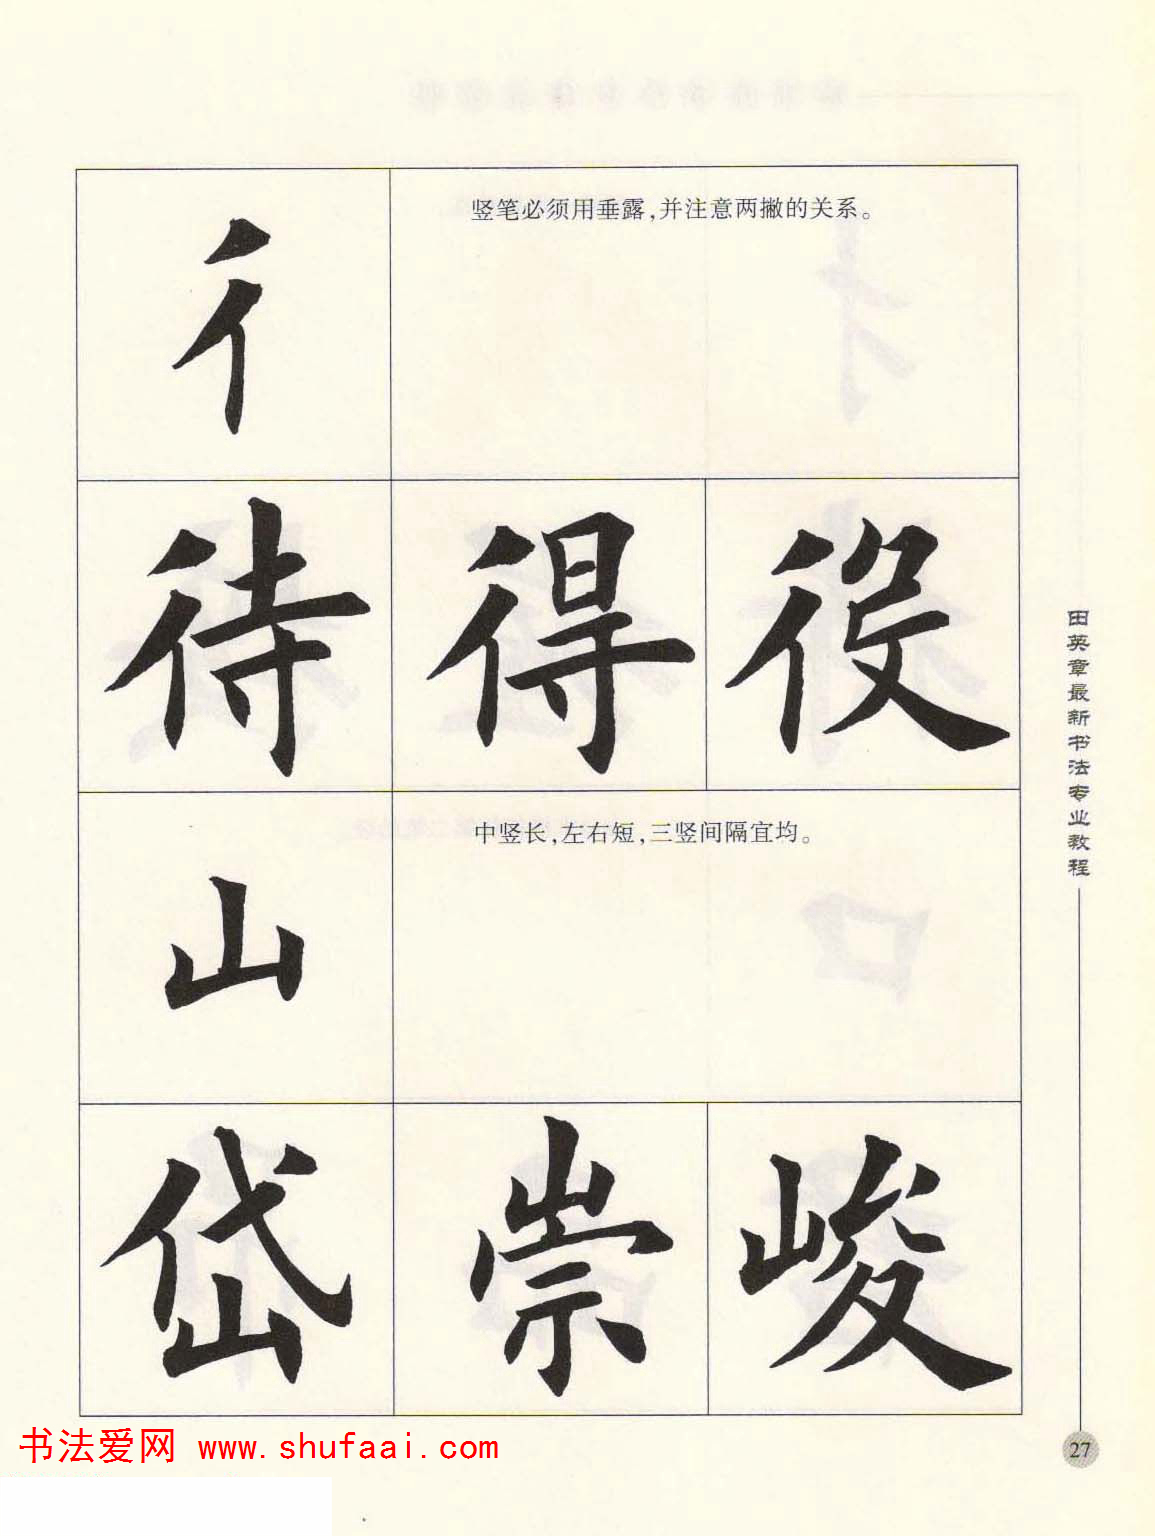 彳
竖笔必须用垂露,并注意两撇的关系。
待 得 役
山
中竖长,左右短,三竖间隔宜均。
岱 崇 峻
田英章最新书法专业教程
27
书法爱网 www.shufaai.com